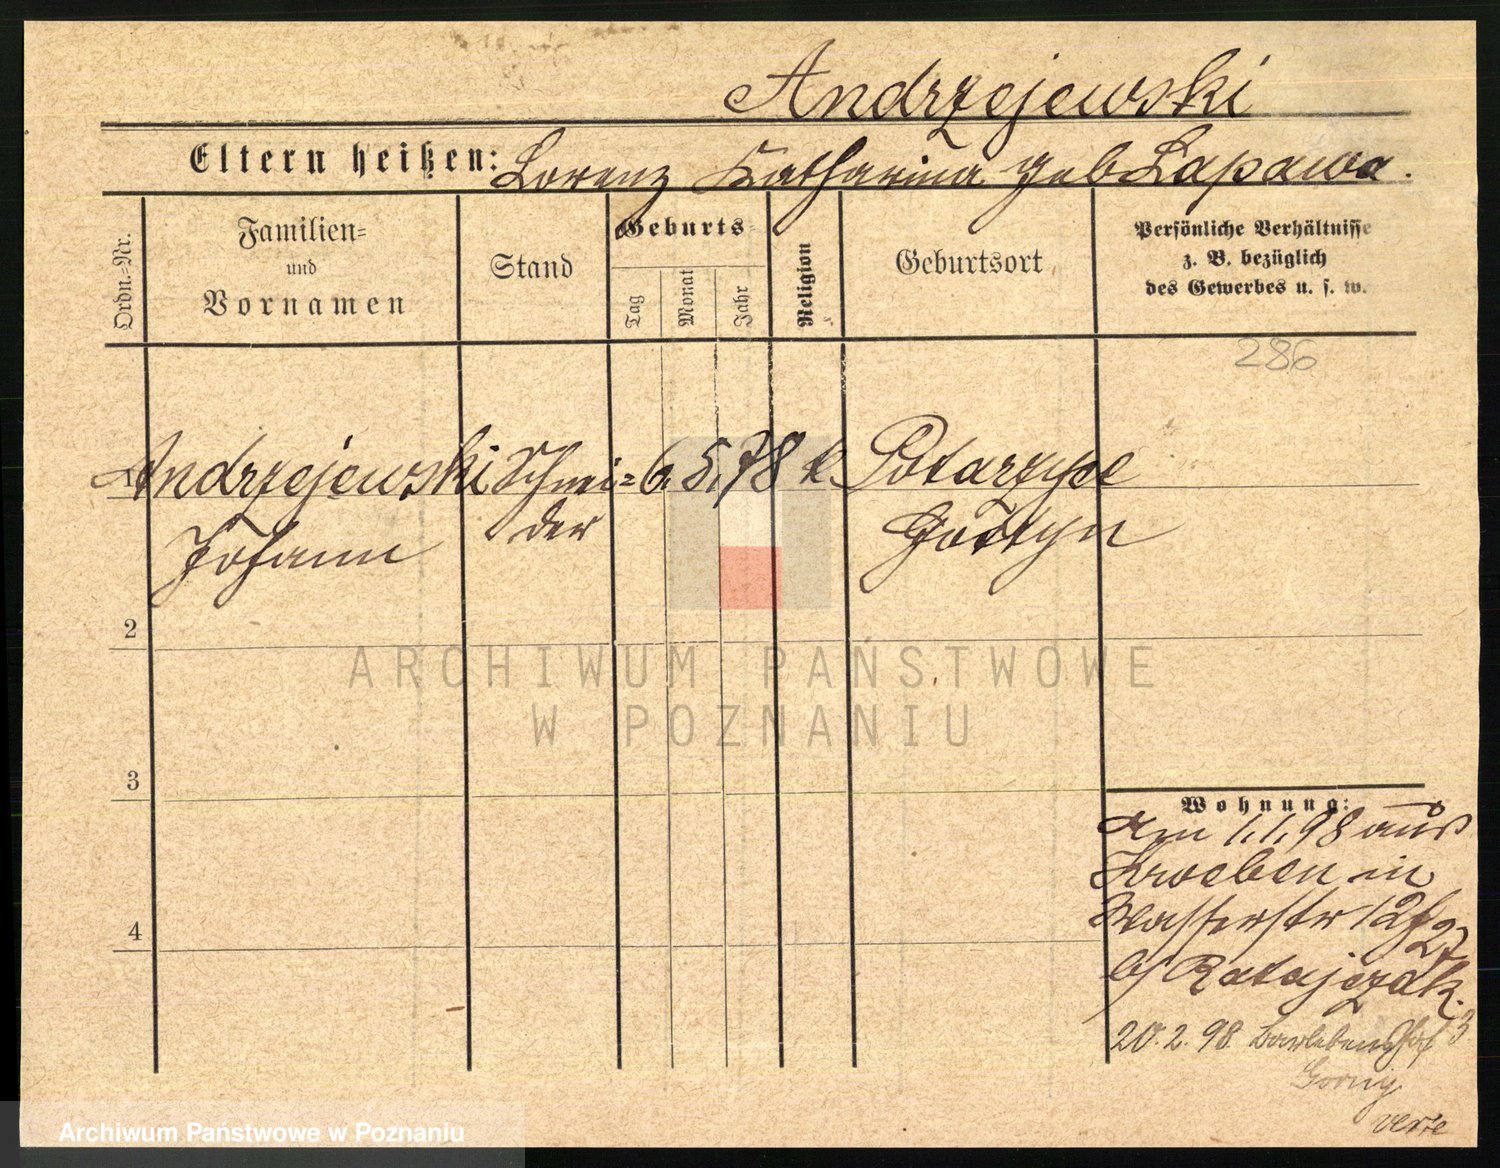 Andrzejewski
Eltern heißen: Lorenz Katharina geb Lapawa.
Ordn.=Nr.
Familien=
und
Vornamen
Stand
Geburts=
Tag
Monat
Jahr
Religion
Geburtsort
Persönliche Verhältnisse
z. B. bezüglich
des Gewerbes u. s. w.
286
1 Andrzejewski Schnei= 6. 5. 78 k Potarzyce
Johann der Gostyn
2
3
4
Wohnung:
Am 1.1.98 aus
Kroeben in
Wasserstr 12
b/ Ratajczak.
20.2.98 3
verte
ARCHIWUM PAŃSTWOWE
W POZNANIU
Archiwum Państwowe w Poznaniu